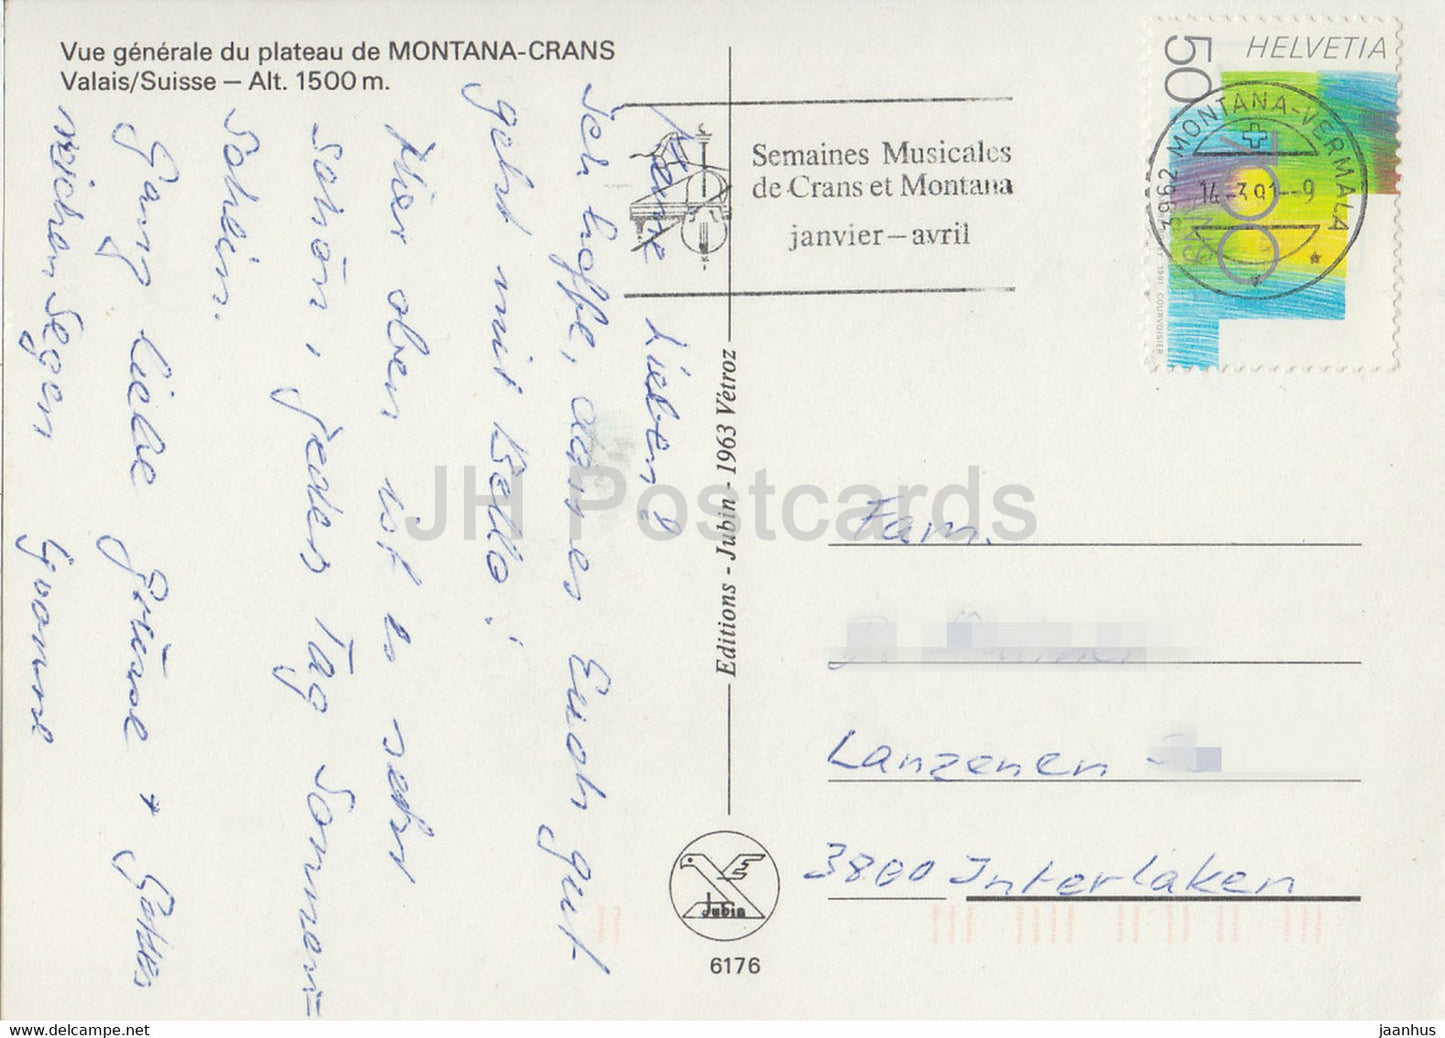 Vue générale du plateau de MONTANA-CRANS
Valais/Suisse – Alt. 1500 m.
Meine Lieben!
Ich hoffe, dass es Euch gut
geht mit Bello!
Hier oben ist es sehr
schön, jeden Tag Sonnen=
schein.
Ganz liebe Grüsse + Gottes
reichen Segen Yvonne
Semaines Musicales
de Crans et Montana
janvier – avril
HELVETIA
50
700
3962 MONTANA-VERMALA
14-3.91--9
1991 COURVOISIER
Editions - Jubin - 1963 Vétroz
Jubin
6176
Fam.
Lanzenen
3800 Interlaken
JH Postcards
www.delcampe.net
jaanhus